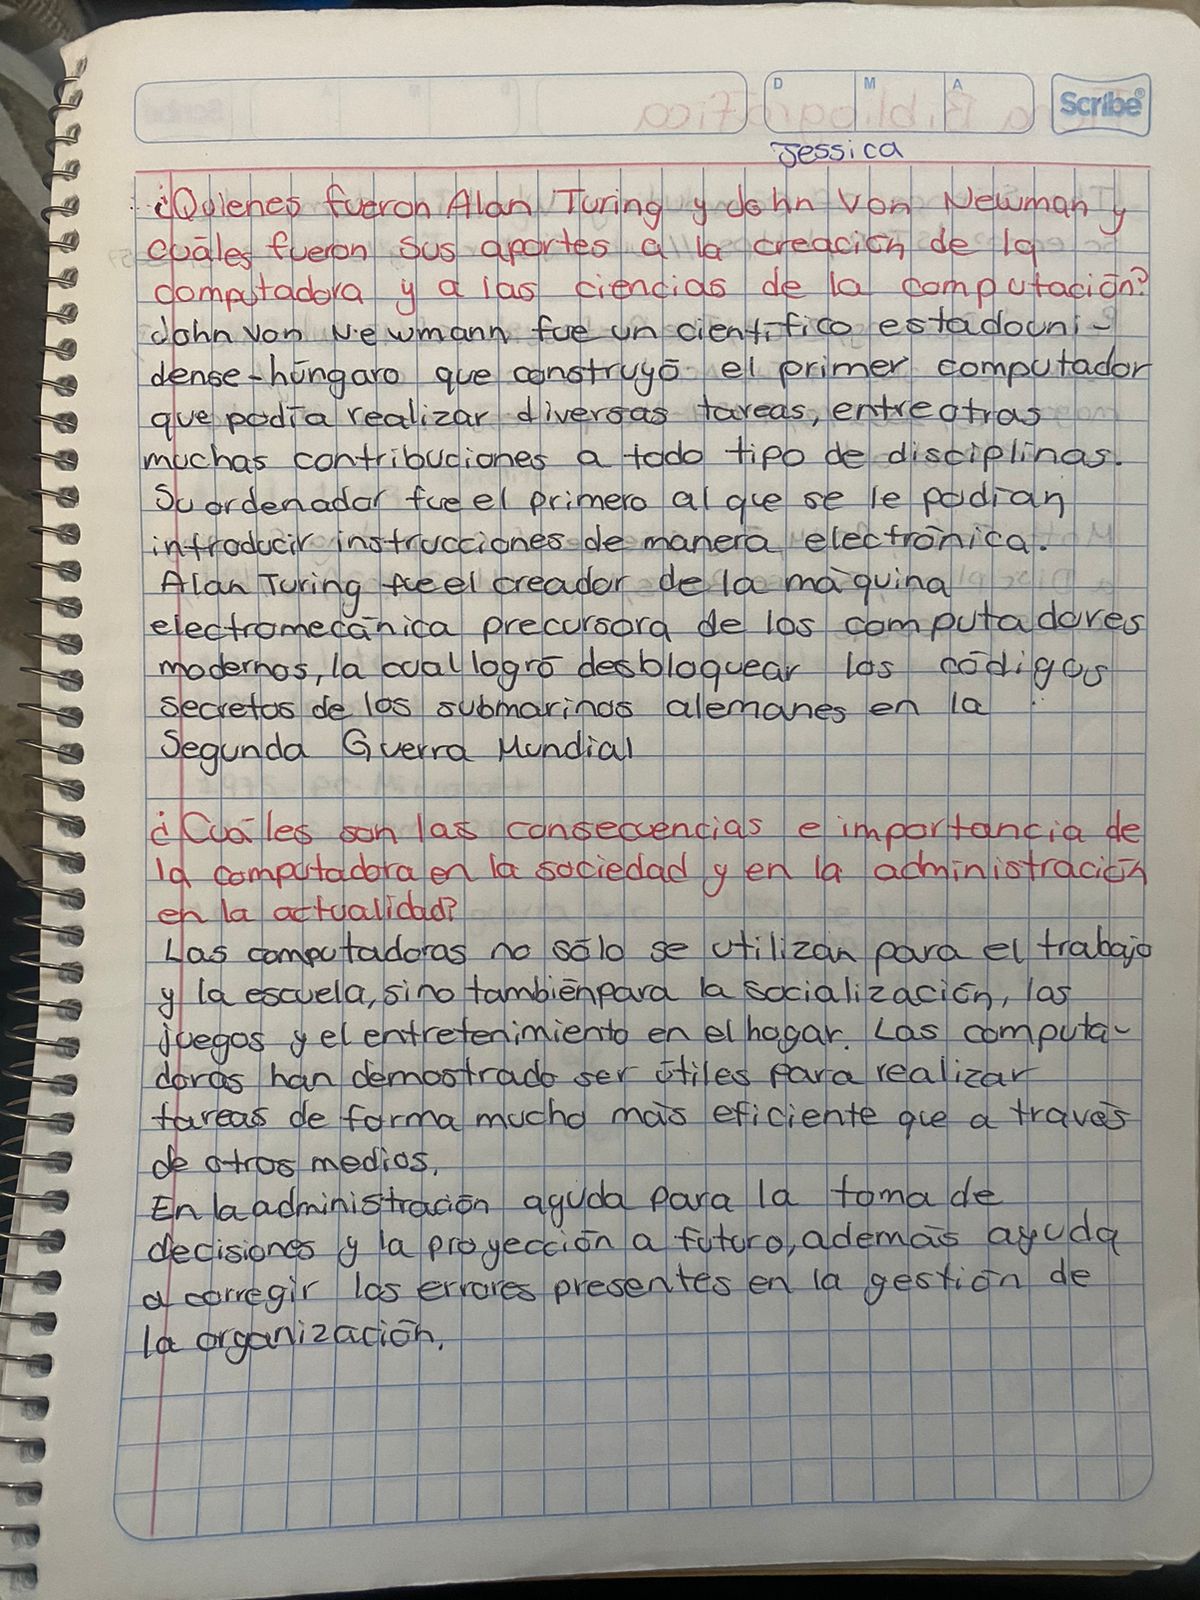 D M A
Scribe®
Jessica
¿Quienes fueron Alan Turing y John Von Newman y
cuáles fueron sus aportes a la creación de la
computadora y a las ciencias de la computación?
John Von Newmann fue un científico estadouni-
dense-húngaro que construyó el primer computador
que podía realizar diversas tareas, entre otras
muchas contribuciones a todo tipo de disciplinas.
Su ordenador fue el primero al que se le podían
introducir instrucciones de manera electrónica.
Alan Turing fue el creador de la máquina
electromecánica precursora de los computadores
modernos, la cual logró desbloquear los códigos
secretos de los submarinos alemanes en la
Segunda Guerra Mundial
¿Cuáles son las consecuencias e importancia de
la computadora en la sociedad y en la administración
en la actualidad?
Las computadoras no sólo se utilizan para el trabajo
y la escuela, sino también para la socialización, los
juegos y el entretenimiento en el hogar. Las computa-
doras han demostrado ser útiles para realizar
tareas de forma mucho más eficiente que a través
de otros medios.
En la administración ayuda para la toma de
decisiones y la proyección a futuro, además ayuda
a corregir los errores presentes en la gestión de
la organización.